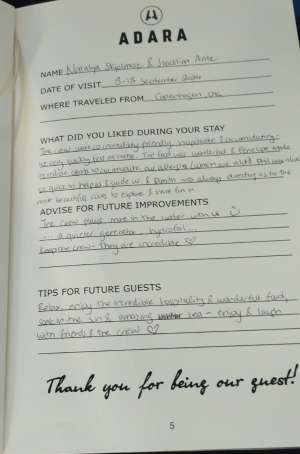 ADARA
NAME Nataliya & Joachim
DATE OF VISIT 8-15 September 2024
WHERE TRAVELED FROM Copenhagen, DK
WHAT DID YOU LIKED DURING YOUR STAY
The crew were so incredibly friendly, hospitable & accomodating.
We very quickly felt at home. The food was wonderful & Penelope made
to accomodate our allergies Phil was always
so quick to help us & guide us & Dimitri always directing us to the
most beautiful coves to explore & have fun in
ADVISE FOR FUTURE IMPROVEMENTS
The crew must more in the water with us
... a quieter generator, hydrofoil...
Keep the crew - they are incredible ♡
TIPS FOR FUTURE GUESTS
Relax, enjoy the incredible hospitality & wonderful food,
soak in the sun & amazing sea - enjoy & laugh
with friends & the crew ♡
Thank you for being our guest!
5